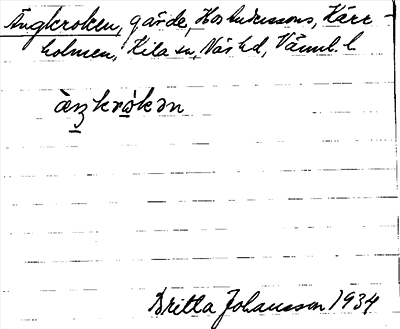 Ängkroken, gärde, Hos Anderssons, Kärr-
holmen, Kila sn, Näs hd, Värml. l.
Britta Johansson 1934